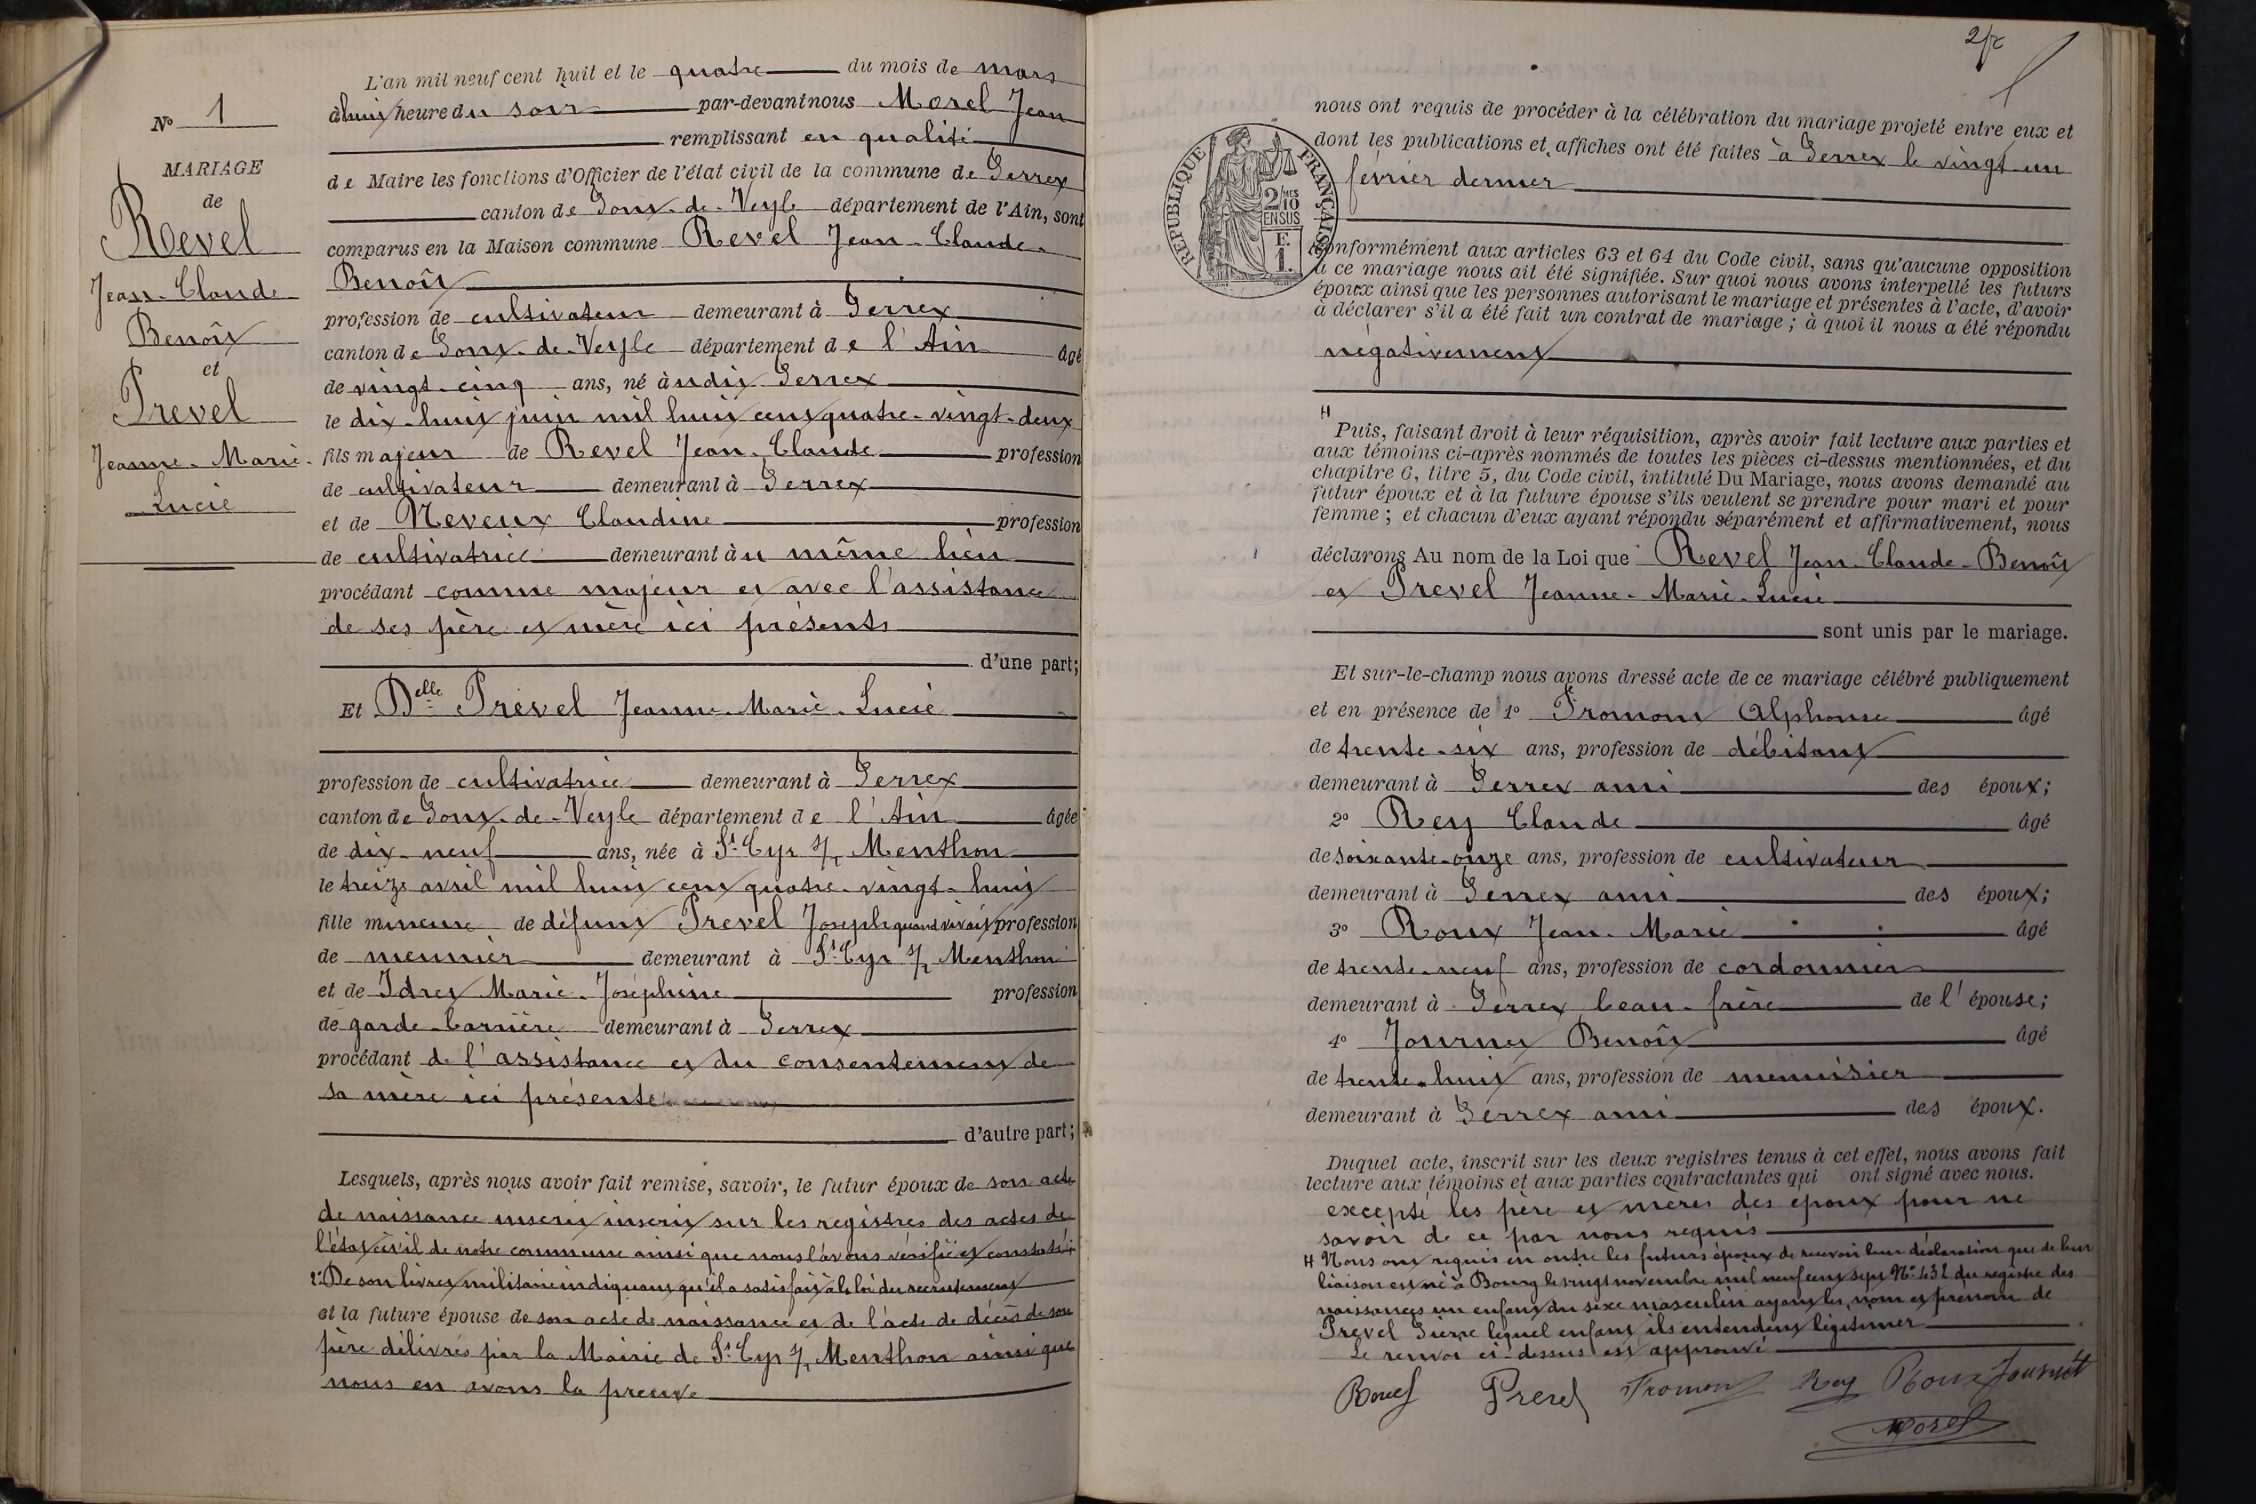 L'an mil neuf cent huit et le quatre du mois de mars
à huit heure du soir par-devant nous Morel Jean
remplissant en qualité
de Maire les fonctions d'Officier de l'état civil de la commune de Perrex
canton de Pont-de-Veyle département de l'Ain, sont
comparus en la Maison commune Revel Jean-Claude-
Benoît
profession de cultivateur demeurant à Perrex
canton de Pont-de-Veyle département de l'Ain âgé
de vingt-cinq ans, né àudit Perrex
le dix-huit juin mil huit cent quatre-vingt-deux
fils majeur de Revel Jean-Claude profession
de cultivateur demeurant à Perrex
et de Neveux Claudine profession
de cultivatrice demeurant àu même lieu
procédant comme majeur et avec l'assistance
de ses père et mère ici présents
d'une part;
Et Delle Prevel Jeanne-Marie-Lucie
profession de cultivatrice demeurant à Perrex
canton de Pont-de-Veyle département de l'Ain âgée
de dix-neuf ans, née à St Cyr s/ Menthon
le treize avril mil huit cent quatre-vingt-huit
fille mineure de défunt Prevel Joseph quand vivait profession
de meunier demeurant à St Cyr s/ Menthon
et de Marie-Joséphine profession
de garde-barrière demeurant à Perrex
procédant de l'assistance et du consentement de
sa mère ici présente
d'autre part;
Lesquels, après nous avoir fait remise, savoir, le futur époux de son acte
de naissance inscrit inscrit sur les registres des actes de
l'état civil de notre commune ainsi que nous l'avons vérifié et constaté;
2° De son livret militaire indiquant qu'il a satisfait à la loi du recrutement
et la future épouse de son acte de naissance et de l'acte de décès de son
père délivrés par la Mairie de St Cyr s/ Menthon ainsi que
nous en avons la preuve
N° 1
MARIAGE
de
Revel
Jean-Claude
Benoît
et
Prevel
Jeanne-Marie-
Lucie
RÉPUBLIQUE FRANÇAISE
2/10 MES
EN SUS
F.
1.
nous ont requis de procéder à la célébration du mariage projeté entre eux et
dont les publications et affiches ont été faites à Perrex le vingt-un
février dernier
conformément aux articles 63 et 64 du Code civil, sans qu'aucune opposition
à ce mariage nous ait été signifiée. Sur quoi nous avons interpellé les futurs
époux ainsi que les personnes autorisant le mariage et présentes à l'acte, d'avoir
à déclarer s'il a été fait un contrat de mariage; à quoi il nous a été répondu
négativement
H
Puis, faisant droit à leur réquisition, après avoir fait lecture aux parties et
aux témoins ci-après nommés de toutes les pièces ci-dessus mentionnées, et du
chapitre 6, titre 5, du Code civil, intitulé Du Mariage, nous avons demandé au
futur époux et à la future épouse s'ils veulent se prendre pour mari et pour
femme; et chacun d'eux ayant répondu séparément et affirmativement, nous
déclarons Au nom de la Loi que Revel Jean-Claude-Benoît
et Prevel Jeanne-Marie-Lucie
sont unis par le mariage.
Et sur-le-champ nous avons dressé acte de ce mariage célébré publiquement
et en présence de 1° Fromont Alphonse âgé
de trente-six ans, profession de débitant
demeurant à Perrex ami des époux;
2° Rey Claude âgé
de soixante-onze ans, profession de cultivateur
demeurant à Perrex ami des époux;
3° Roux Jean-Marie âgé
de trente-neuf ans, profession de cordonnier
demeurant à Perrex beau-frère de l'épouse;
4° Journet Benoît âgé
de trente-huit ans, profession de menuisier
demeurant à Perrex ami des époux.
Duquel acte, inscrit sur les deux registres tenus à cet effet, nous avons fait
lecture aux témoins et aux parties contractantes qui ont signé avec nous.
excepté les père et mères des époux pour ne
savoir de ce par nous requis
H Nous ont requis en outre les futurs époux de recevoir leur déclaration que de leur
liaison est né à Bourg le vingt novembre mil neuf cent sept N° 432 du registre des
naissances un enfant du sexe masculin ayant les nom et prénom de
Prevel Pierre lequel enfant ils entendent légitimer
Le renvoi ci-dessus est approuvé
Revel Prevel Fromont Rey Roux Journet
Morel